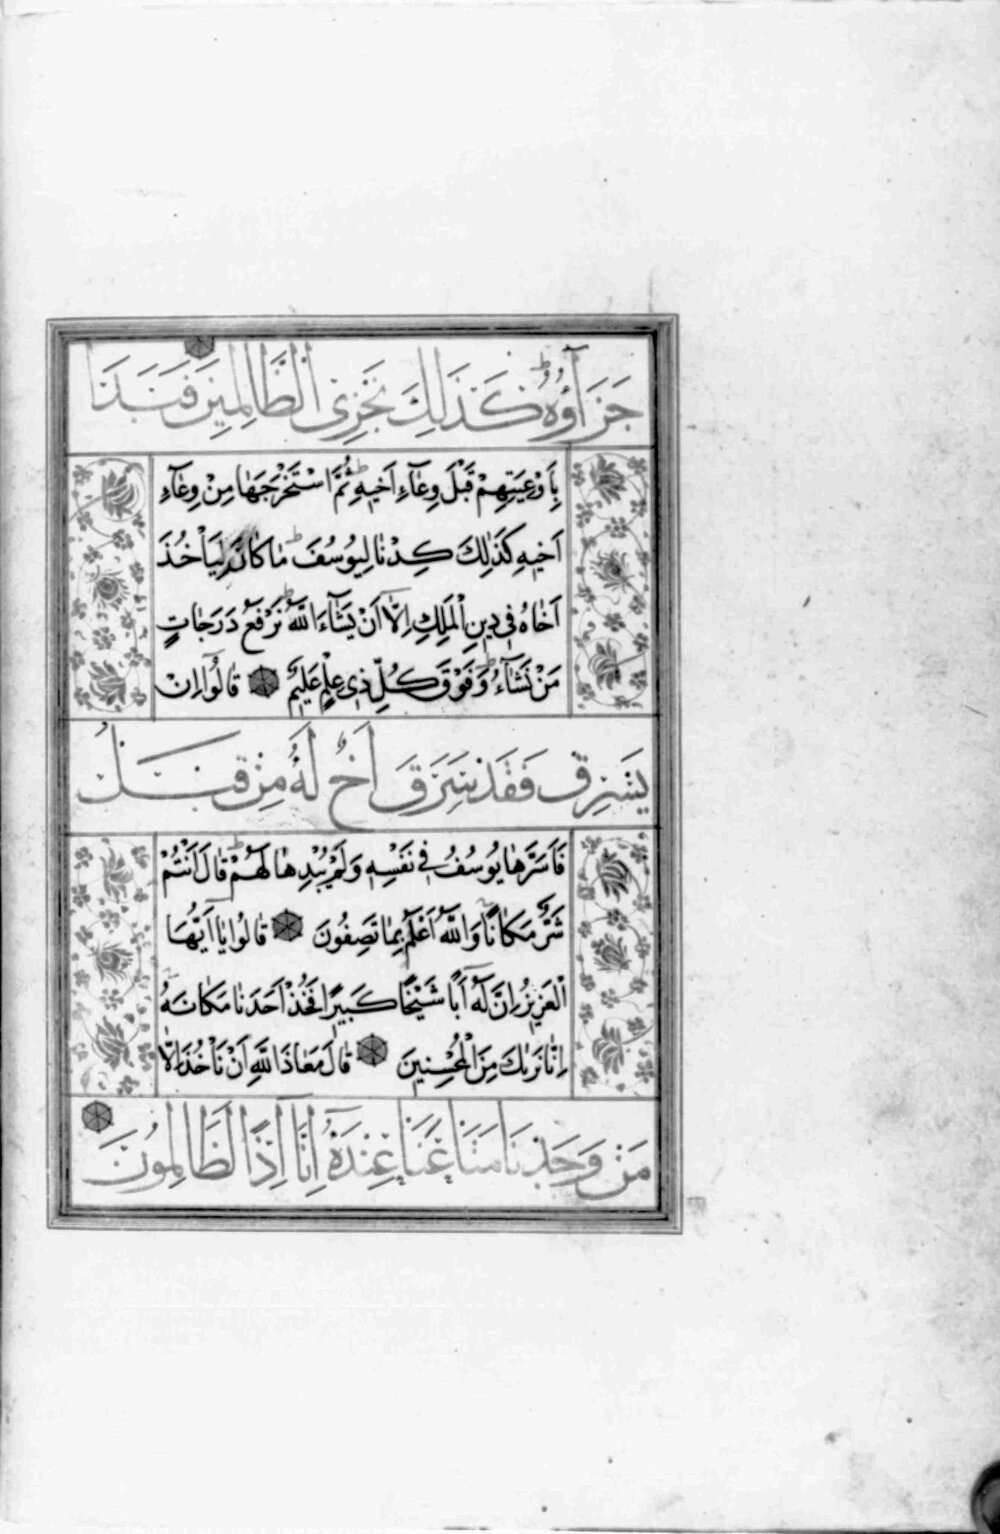 جَزَآؤُهُ كَذَلِكَ نَجْزِی الظَّالِمِینَ فَبَدَاَ
بِاَوْعِیَتِهِمْ قَبْلَ وِعَآءِ اَخیهِ ثُمَّ اسْتَخْرَجَهَا مِنْ وِعَآءِ
اَخیهِ كَذَلِكَ كِدْنَا لِیُوسُفَ مَا كَانَ لِیَاْخُذَ
اَخَاهُ فی دینِ الْمَلِكِ اِلَّا اَنْ یَشَآءَ اللَّهُ نَرْفَعُ دَرَجَاتٍ
مَنْ نَشَآءُ وَفَوْقَ كُلِّ ذی عِلْمٍ عَلیمٌ قَالُوٓا اِنْ
یَسْرِقْ فَقَدْ سَرَقَ اَخٌ لَهُ مِنْ قَبْلُ
فَاَسَرَّهَا یُوسُفُ فی نَفْسِهِ وَلَمْ یُبْدِهَا لَهُمْ قَالَ اَنْتُمْ
شَرٌّ مَكَانًا وَاللَّهُ اَعْلَمُ بِمَا تَصِفُونَ قَالُوا یَآ اَیُّهَا
الْعَزیزُ اِنَّ لَهُ اَبًا شَیْخًا كَبیرًا فَخُذْ اَحَدَنَا مَكَانَهُ
اِنَّا نَرٰیكَ مِنَ الْمُحْسِنینَ قَالَ مَعَاذَ اللَّهِ اَنْ نَاْخُذَ اِلَّا
مَنْ وَجَدْنَا مَتَاعَنَا عِنْدَهُ اِنَّآ اِذًا لَظَالِمُونَ